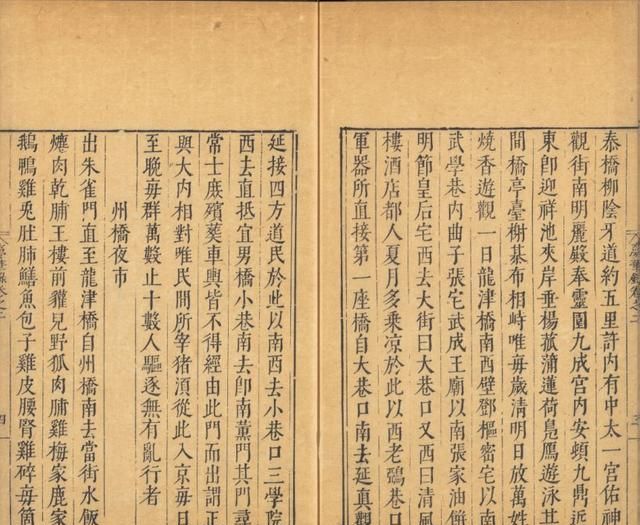 泰橋柳陰牙道約五里許内有中太一宫佑神
觀街南明麗殿奉靈園九成宫内安頓九鼎近
東卽迎祥池夾岸垂楊菰蒲蓮荷鳧鴈遊泳其
間橋亭臺榭棊布相峙唯毎歲清明日放萬姓
燒香遊觀一日龍津橋南西壁鄧樞密宅以南
武學巷内曲子張宅武成王廟以南張家油
明節皇后宅西去大街曰大巷口又西曰清風
樓酒店都人夏月多乗凉於此以西老鵶巷口
軍器所直接第一座橋自大巷口南去延真觀
延接四方道民於此以南西去小巷口三學院
西去直抵宜男橋小巷南去卽南薰門其門尋
常士庶殯葬車輿皆不得經由此門而出謂正
與大内相對唯民間所宰猪須從此入京毎日
至晚毎群萬數止十數人驅逐無有亂行者
州橋夜市
出朱雀門直至龍津橋自州橋南去當街水飯
爊肉乾脯王樓前貛兒野狐肉脯雞梅家鹿家
鵝鴨雞兎肚肺鱔魚包子雞皮腰腎雞碎毎箇
四